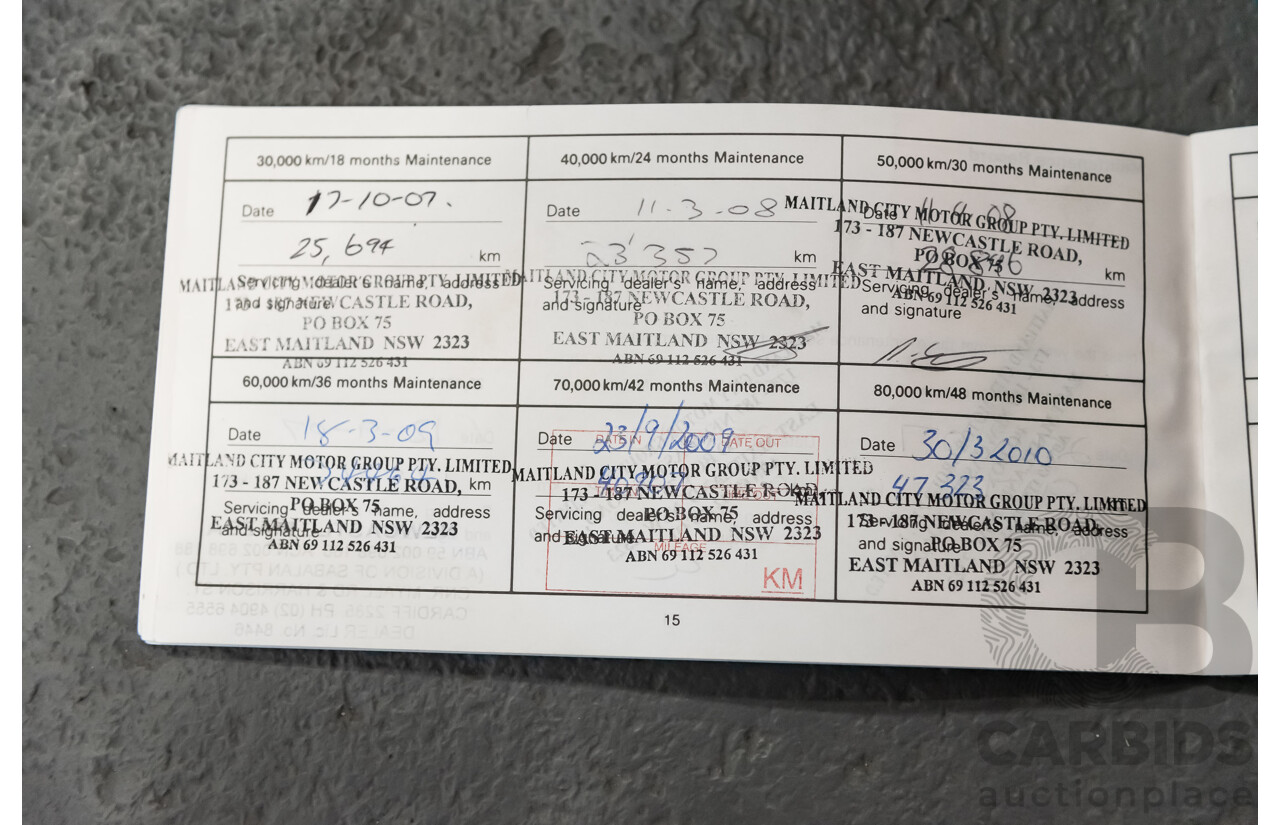 30,000 km/18 months Maintenance
Date 17-10-07.
25,694 km
Servicing dealer's name, address
and signature
MAITLAND CITY MOTOR GROUP PTY. LIMITED
NEWCASTLE ROAD,
PO BOX 75
EAST MAITLAND NSW 2323
ABN 69 112 526 431
40,000 km/24 months Maintenance
Date 11-3-08
km
Servicing dealer's name, address
and signature
MAITLAND CITY MOTOR GROUP PTY. LIMITED
173 - 187 NEWCASTLE ROAD,
PO BOX 75
EAST MAITLAND NSW 2323
ABN 69 112 526 431
50,000 km/30 months Maintenance
Date
km
Servicing dealer's name, address
and signature
MAITLAND CITY MOTOR GROUP PTY. LIMITED
173 - 187 NEWCASTLE ROAD,
PO BOX 75
EAST MAITLAND NSW 2323
ABN 69 112 526 431
60,000 km/36 months Maintenance
Date 18-3-09
km
Servicing dealer's name, address
and signature
MAITLAND CITY MOTOR GROUP PTY. LIMITED
173 - 187 NEWCASTLE ROAD,
PO BOX 75
EAST MAITLAND NSW 2323
ABN 69 112 526 431
70,000 km/42 months Maintenance
Date 23/9/2009
DATE IN DATE OUT
Servicing dealer's name, address
and signature
MAITLAND CITY MOTOR GROUP PTY. LIMITED
173 - 187 NEWCASTLE ROAD,
PO BOX 75
EAST MAITLAND NSW 2323
ABN 69 112 526 431
MILEAGE
KM
80,000 km/48 months Maintenance
Date 30/3 2010
47 323 km
Servicing dealer's name, address
and signature
MAITLAND CITY MOTOR GROUP PTY. LIMITED
173 - 187 NEWCASTLE ROAD,
PO BOX 75
EAST MAITLAND NSW 2323
ABN 69 112 526 431
15
CARBIDS
auctionplace